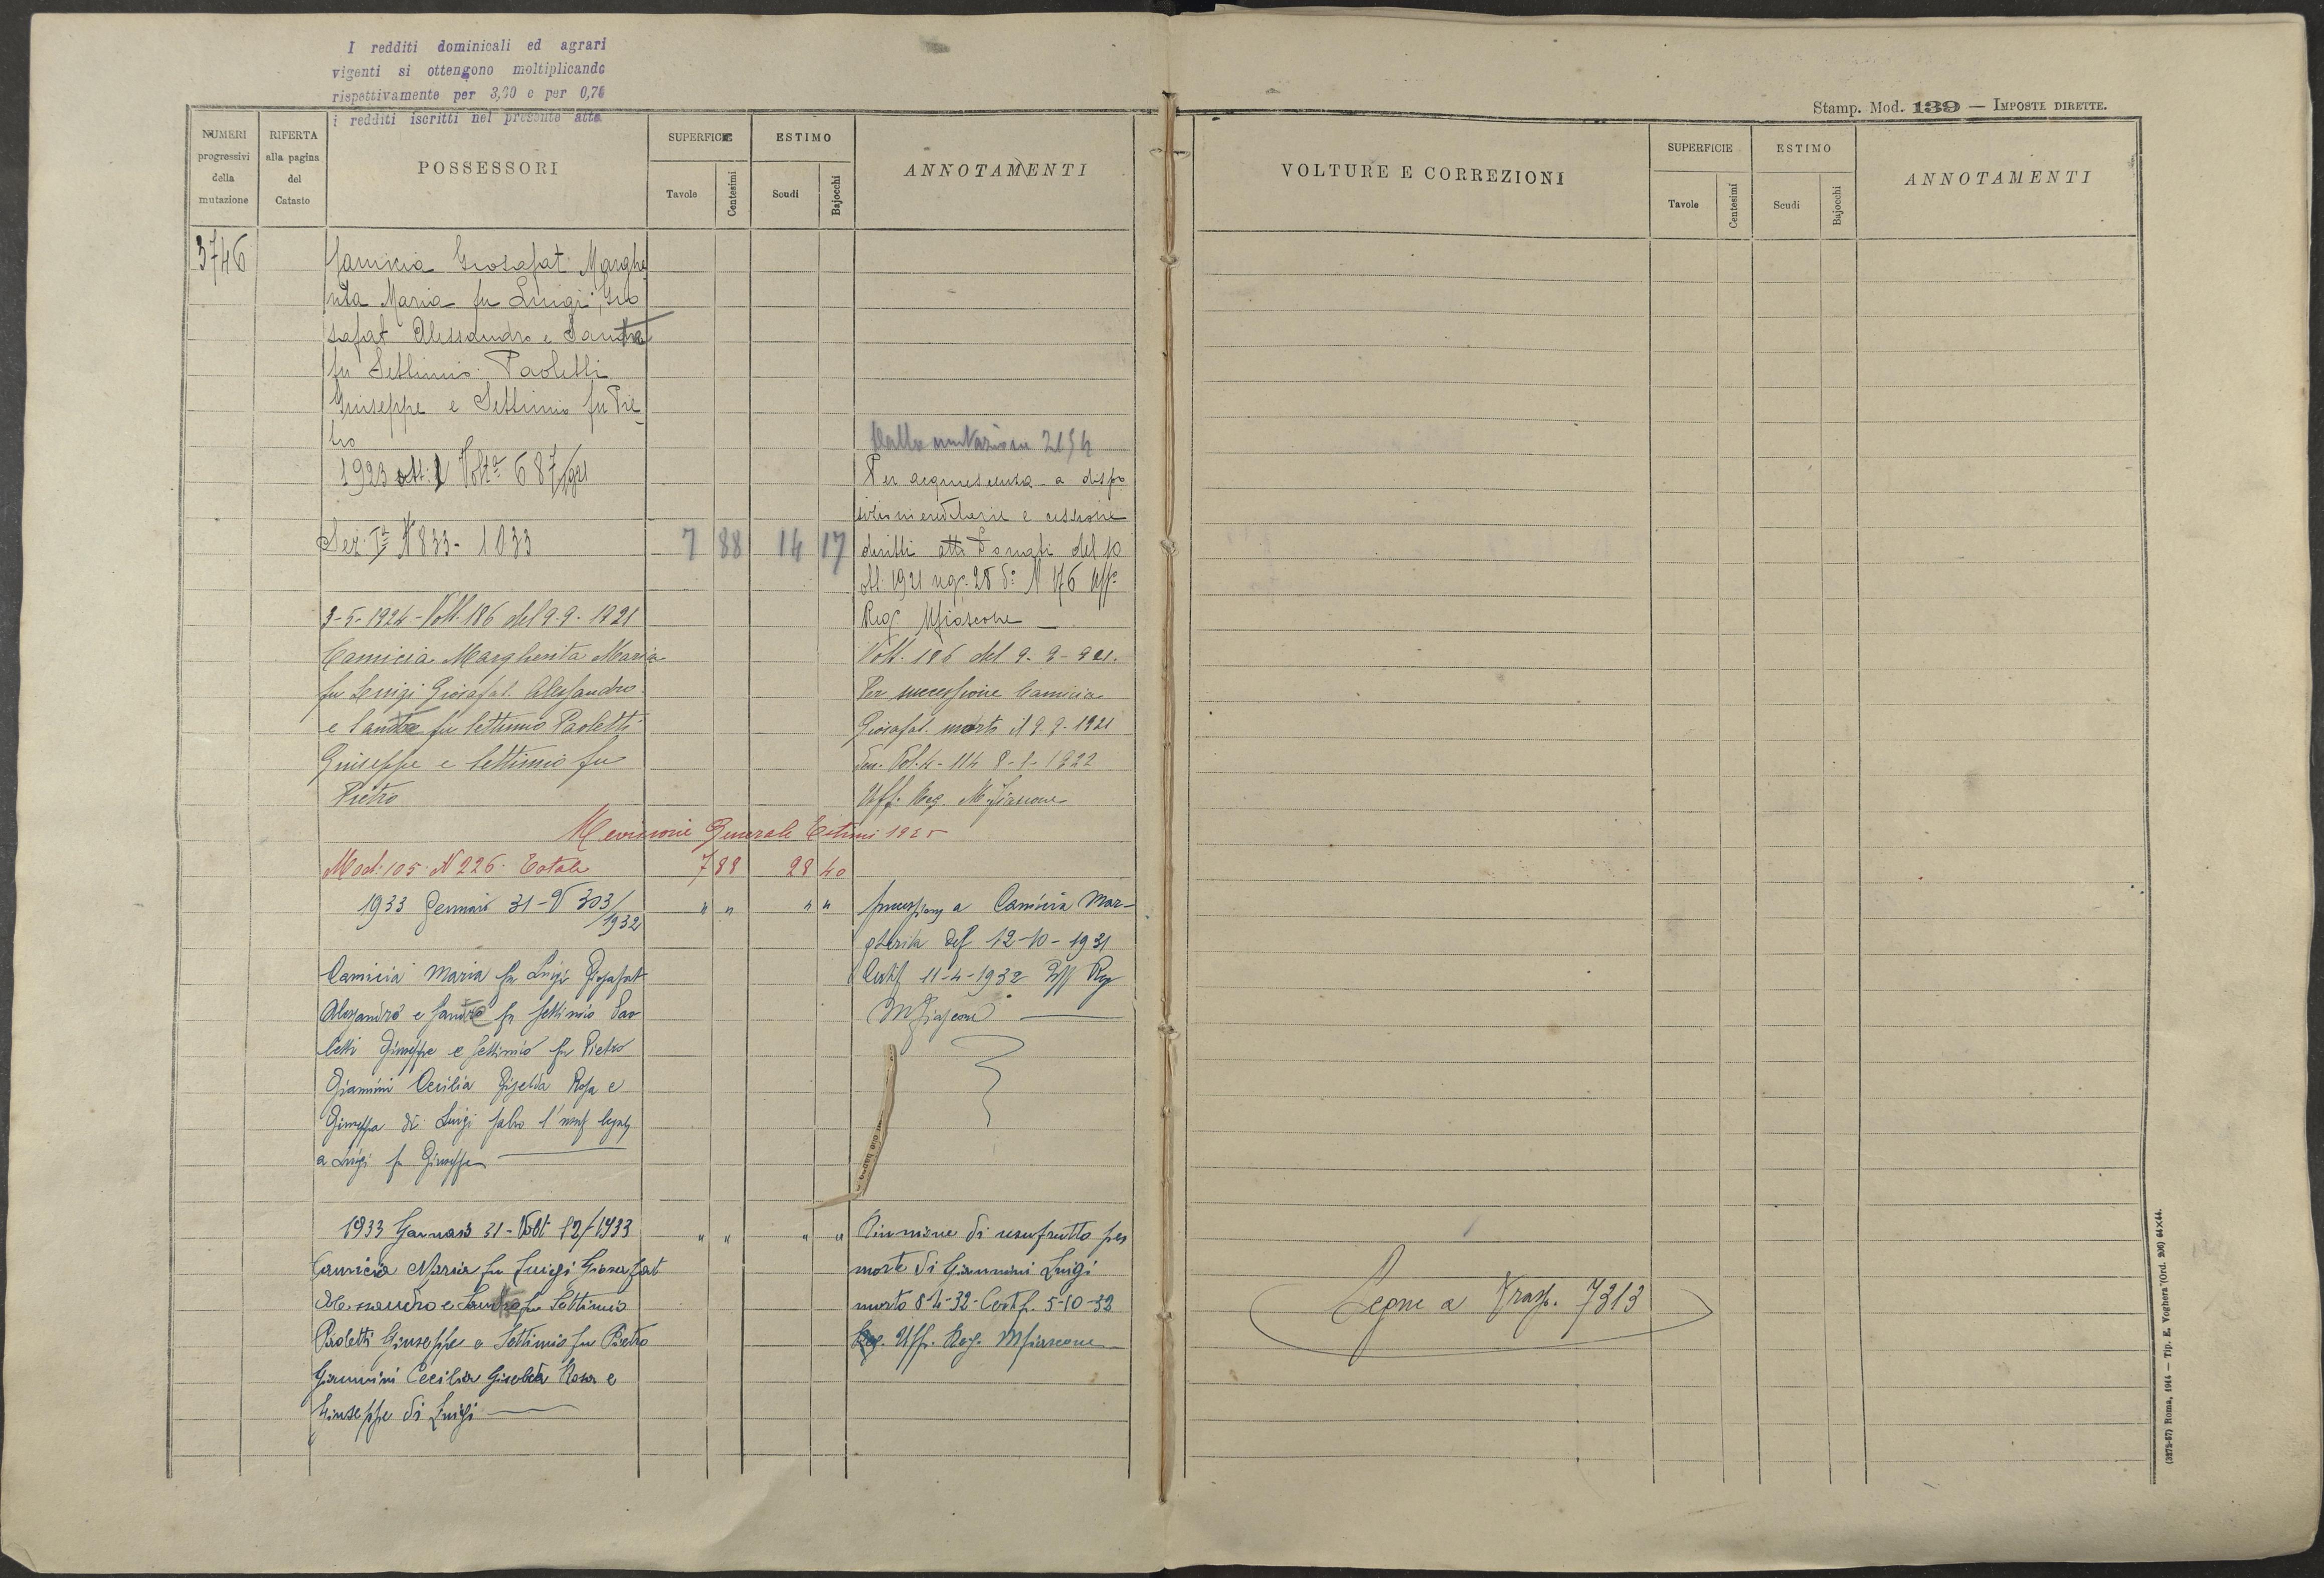 I redditi dominicali ed agrari
vigenti si ottengono moltiplicando
rispettivamente per 3,60 e per 0,76
i redditi iscritti nel presente atto
NUMERI
progressivi
della
mutazione
RIFERTA
alla pagina
del
Catasto
POSSESSORI
SUPERFICIE
Tavole
Centesimi
ESTIMO
Scudi
Bajocchi
ANNOTAMENTI
3746
Camicia Giosafat Marghe
rita Maria fu Luigi, Gio
safat Alessandro e Santa
fu Settimio. Paoletti
Giuseppe e Settimio fu Pie
tro
1923 ott: 1 Volt.ª 687/921
Sez. Iª N 833 - 1033
7 88 14 17
Dalla mutazione 2154
Per acquiescenza a dispo
sizioni ereditarie e cessione
diritti atto Donati del 10
ott. 1921 reg. 28 do N 176 Uffo
Rego Mfiascone
3-5-1924 - Volt. 186 del 9-9-1921
Camicia Margherita Maria
fu Luigi Giosafat. Alessandro
e Santa fu Settimio Paoletti
Giuseppe e Settimio fu
Pietro
Volt. 186 del 9-9-921.
Per successione Camicia
Giosafat. morto il 9-9-1921
Den. Vol. 4 - 114 8-1-1922
Uff. Reg. Mfiascone
Revisione Generale Estimi 1925
Mod: 105 N 226. Totale 7 88 28 40
1933 Gennaio 31 - V 303/1932 " " " "
Camicia Maria fu Luigi Giosafat
Alessandro e Santa fu Settimio Pao
letti Giuseppe e Settimio fu Pietro
Giannini Cecilia Gisella Rosa e
Giuseppa di Luigi salvo l'usuf
a Luigi fu Giuseppe
Successione a Camicia Mar-
gherita def 12-10-1931
Certif 11-4-1932 Uff Reg
Mfiascone
1933 Gennaio 31 - Volt 12/1933 " " " "
Camicia Maria fu Luigi Giosafat
Alessandro e Santa fu Settimio
Paoletti Giuseppe e Settimio fu Pietro
Giannini Cecilia Gisella Rosa e
Giuseppe di Luigi
Riunione di usufrutto per
morte di Giannini Luigi
morto 8-4-32 - Certif. 5-10-32
Uff. Reg. Mfiascone
Stamp. Mod. 139 — IMPOSTE DIRETTE.
VOLTURE E CORREZIONI
SUPERFICIE
Tavole
Centesimi
ESTIMO
Scudi
Bajocchi
ANNOTAMENTI
Segue a Trasp. 7313
(3272-57) Roma, 1944 — Tip. E. Voghera (Ord. 206) 64×44.